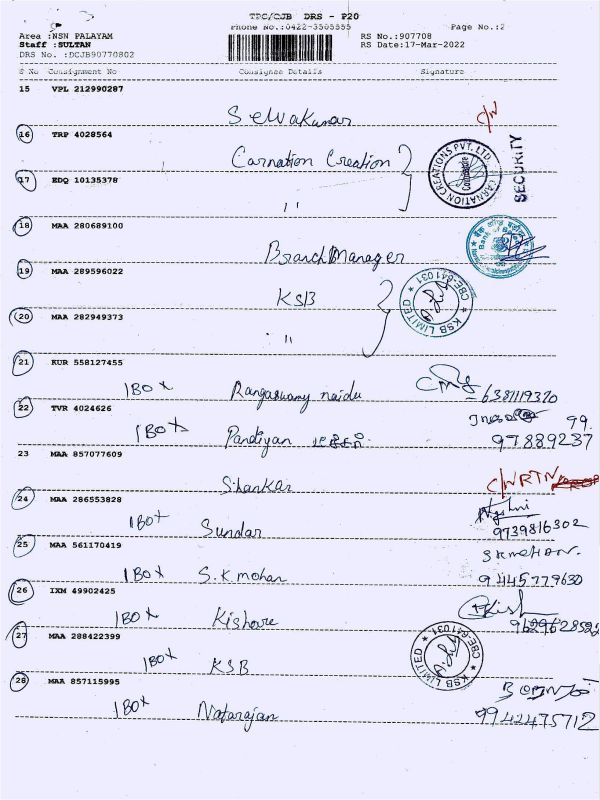 TPC/CJB DRS - P20
Phone No.:0422-3505555 Page No.:2
Area :NSN PALAYAM RS No.:907708
Staff :SULTAN RS Date:17-Mar-2022
DRS No. :DCJB90770802
S No Consignment No Consignee Details Signature
15 VPL 212990287
Selvakumar C/N
16 TRP 4028564
Carnation Creation
CARNATION CREATIONS PVT. LTD. Coimbatore SECURITY
17 EDQ 10135378
"
18 MAA 280689100
Branch Manager
19 MAA 289596022
KSB
KSB LIMITED CBE-641031
20 MAA 282949373
"
21 KUR 558127455
1 BOX Rangaswamy naidu 6381119320
22 TVR 4024626
1 BOX Pandiyan 99.
97889237
23 MAA 857077609
Shankar C/N RTN
24 MAA 286553828
1 BOX Sundar
9739816302
25 MAA 561170419
1 BOX S.K.mohan S.K.MOHAN.
9445779630
26 IXM 49902425
1 BOX Kishore Kish
27 MAA 288422399
1 BOX KSB
KSB LIMITED CBE-641031
28 MAA 857115995
1 BOX Natarajan
9942475712